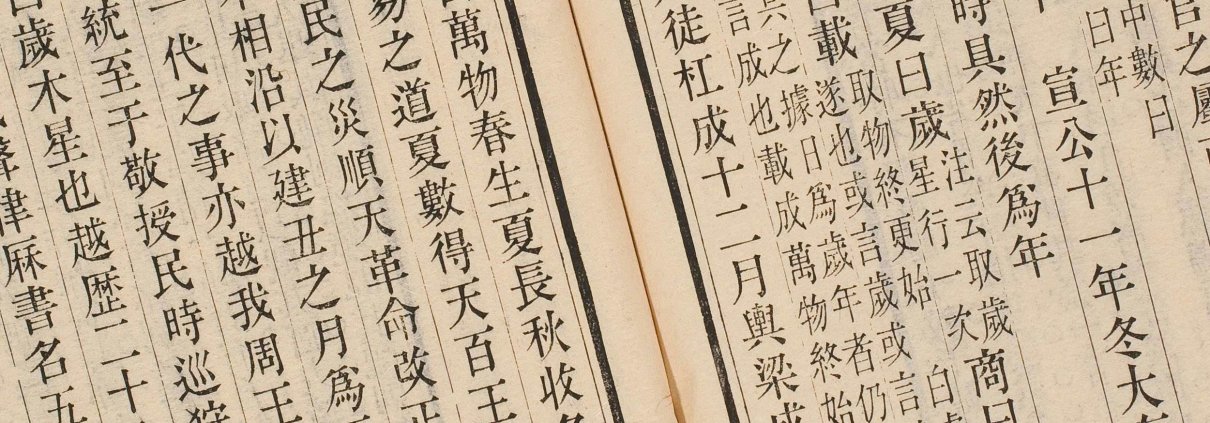 官之屬
中數曰
曰年
宣公十一年冬大
時具然後爲年
夏曰歲
注云取歲
星行一次
商曰
載
取物終更始
遂也或言歲或言
之據日爲歲年者仍
言成也載成萬物終始
徒杠成十二月輿梁成
萬物春生夏長秋收
易之道夏數得天百王
民之災順天革命改正
相沿以建丑之月爲
代之事亦越我周王
統至于敬授民時巡狩
歲木星也越歴二十
律厤書名五